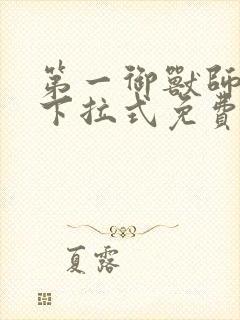 第一御獸師
下拉式免費
夏露